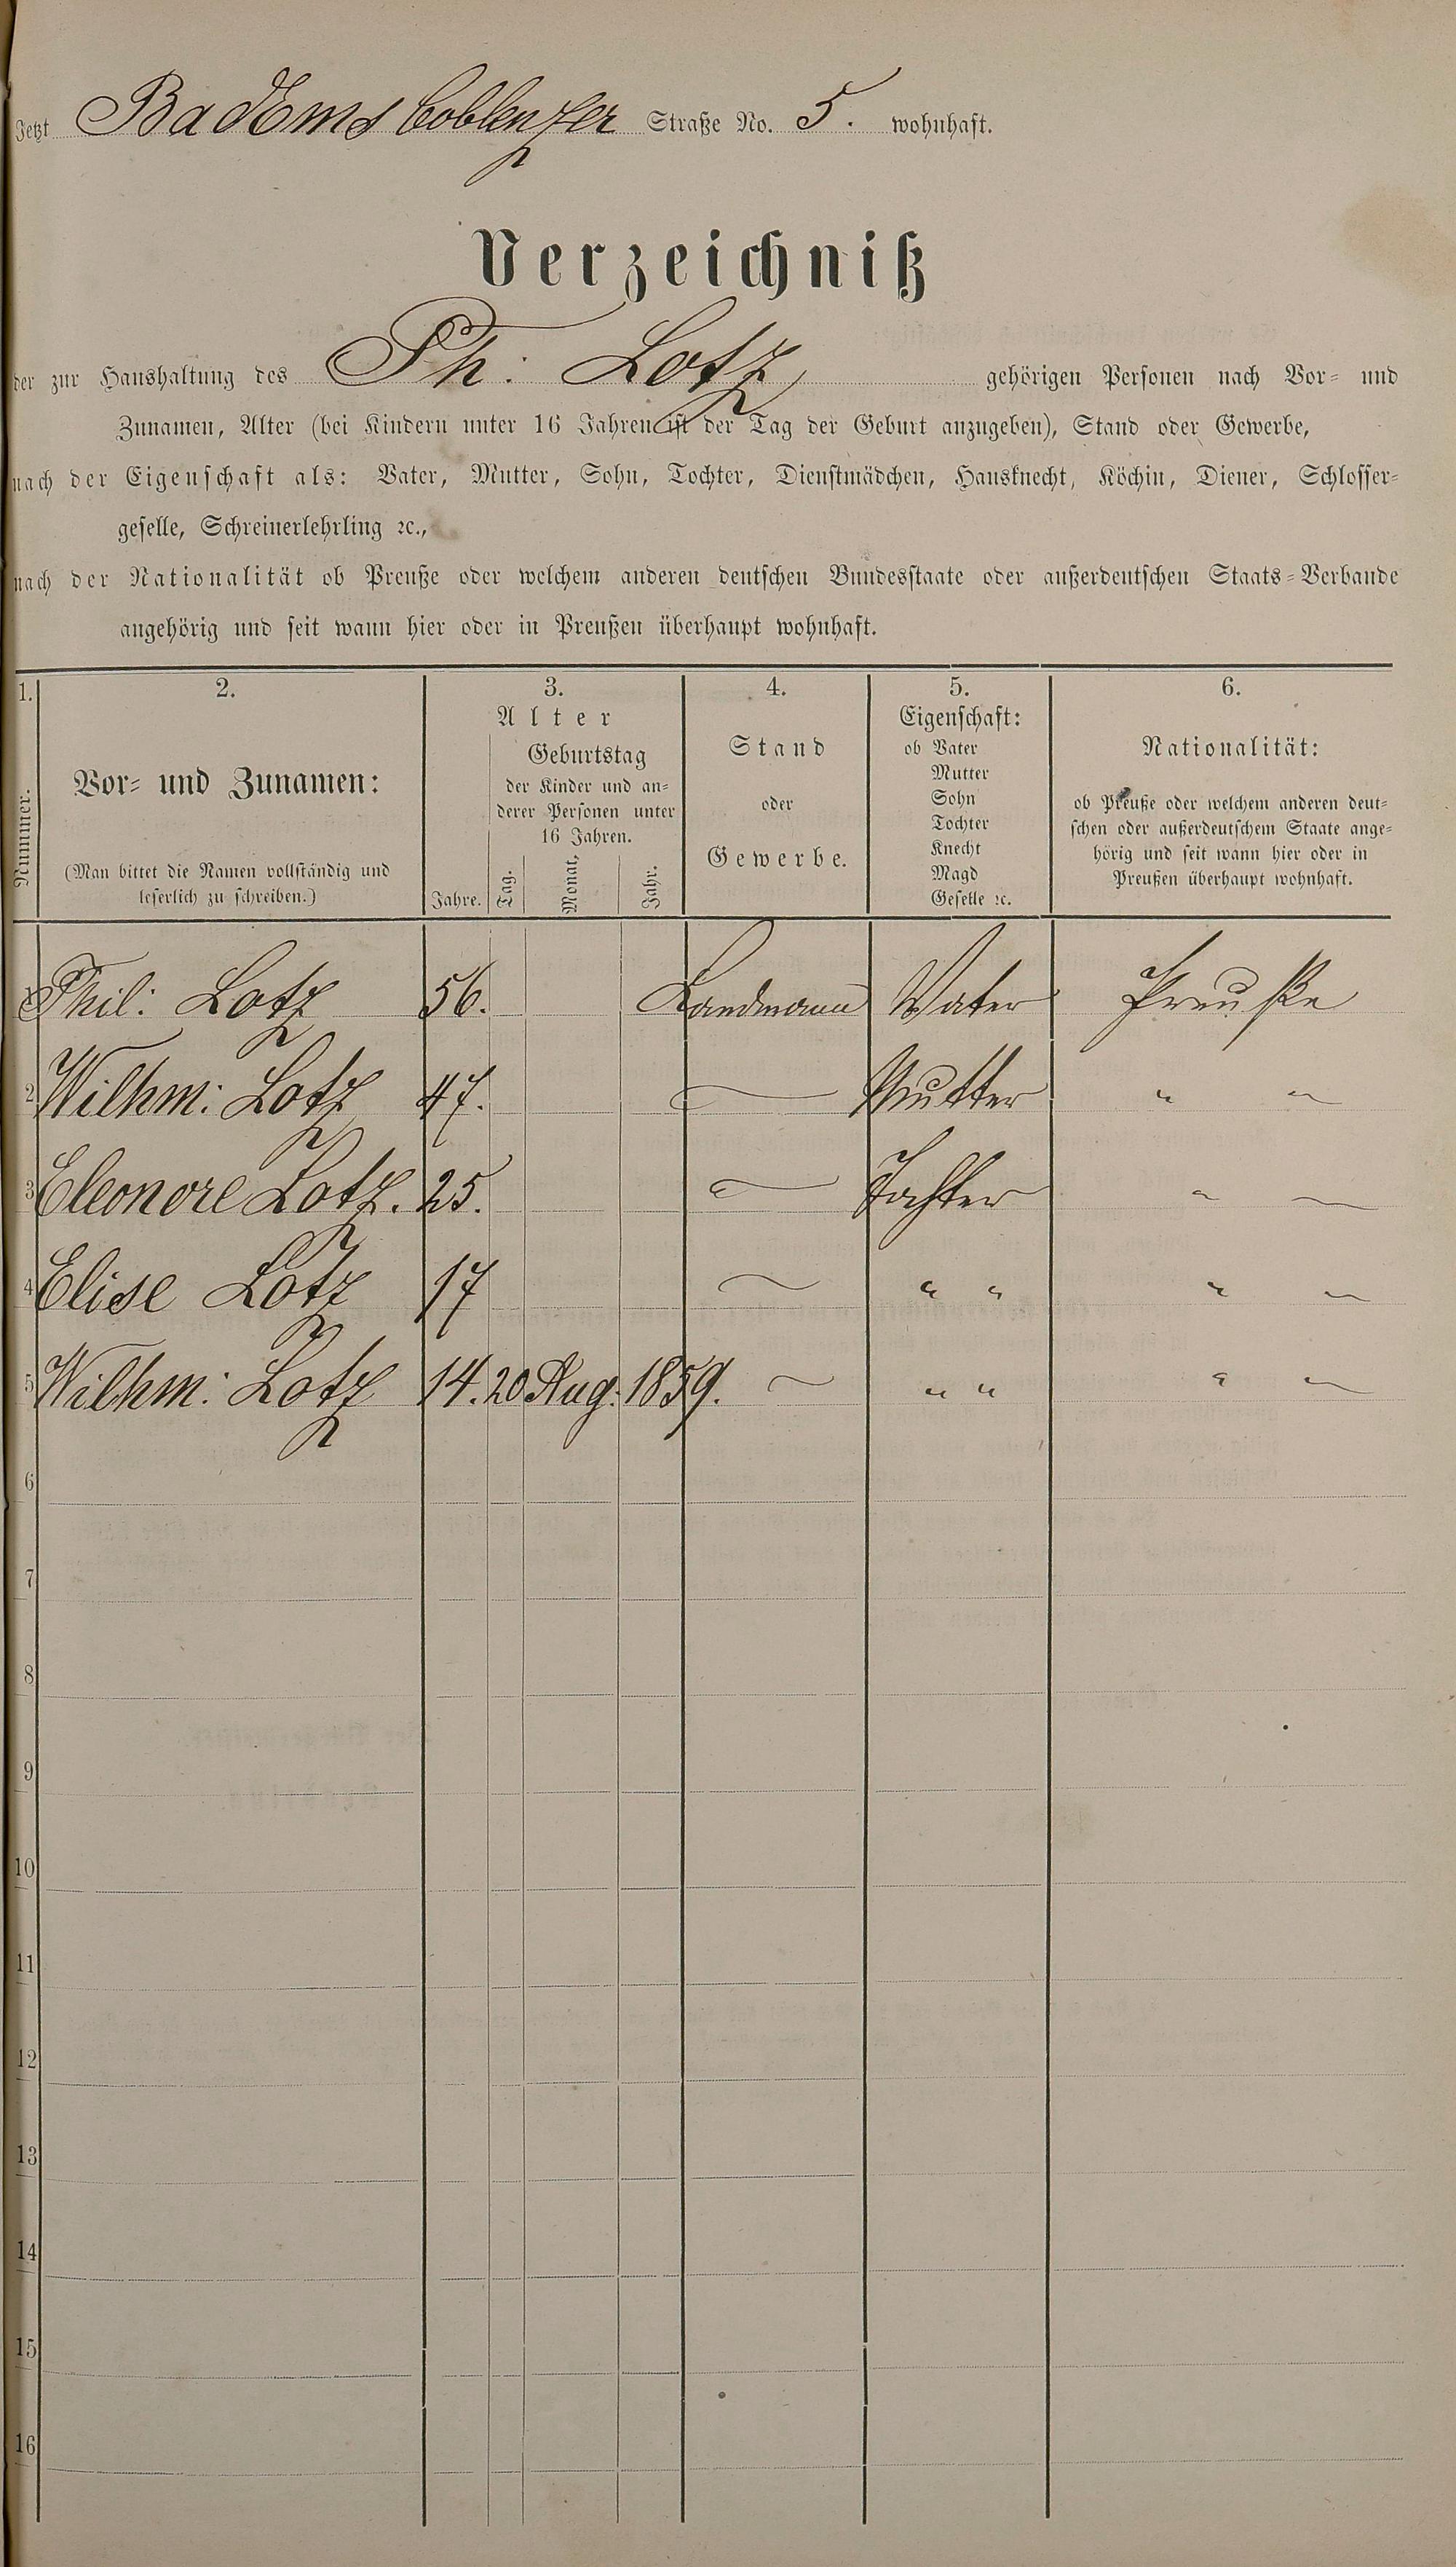 Jetzt Bad Ems Coblenzer Straße No. 5. wohnhaft.
Verzeichniß
der zur Haushaltung des Ph: Lotz gehörigen Personen nach Vor- und
Zunamen, Alter (bei Kindern unter 16 Jahren ist der Tag der Geburt anzugeben), Stand oder Gewerbe,
nach der Eigenschaft als: Vater, Mutter, Sohn, Tochter, Dienstmädchen, Hausknecht, Köchin, Diener, Schlosser-
geselle, Schreinerlehrling ꝛc.,
nach der Nationalität ob Preuße oder welchem anderen deutschen Bundesstaate oder außerdeutschen Staats-Verbande
angehörig und seit wann hier oder in Preußen überhaupt wohnhaft.
1.
Nummer.
2.
Vor- und Zunamen:
(Man bittet die Namen vollständig und
leserlich zu schreiben.)
3.
Alter
Jahre.
Geburtstag
der Kinder und an-
derer Personen unter
16 Jahren.
Tag. Monat. Jahr.
4.
Stand
oder
Gewerbe.
5.
Eigenschaft:
ob Vater
Mutter
Sohn
Tochter
Knecht
Magd
Geselle ꝛc.
6.
Nationalität:
ob Preuße oder welchem anderen deut-
schen oder außerdeutschem Staate ange-
hörig und seit wann hier oder in
Preußen überhaupt wohnhaft.
1 Phil: Lotz 56. Landmann Vater Preuße
2 Wilhm: Lotz 47. — Mutter " "
3 Eleonore Lotz. 25. — Tochter " "
4 Elise Lotz 17 — " " " "
5 Wilhm: Lotz 14. 20 Aug. 1859. — " " " "
6
7
8
9
10
11
12
13
14
15
16